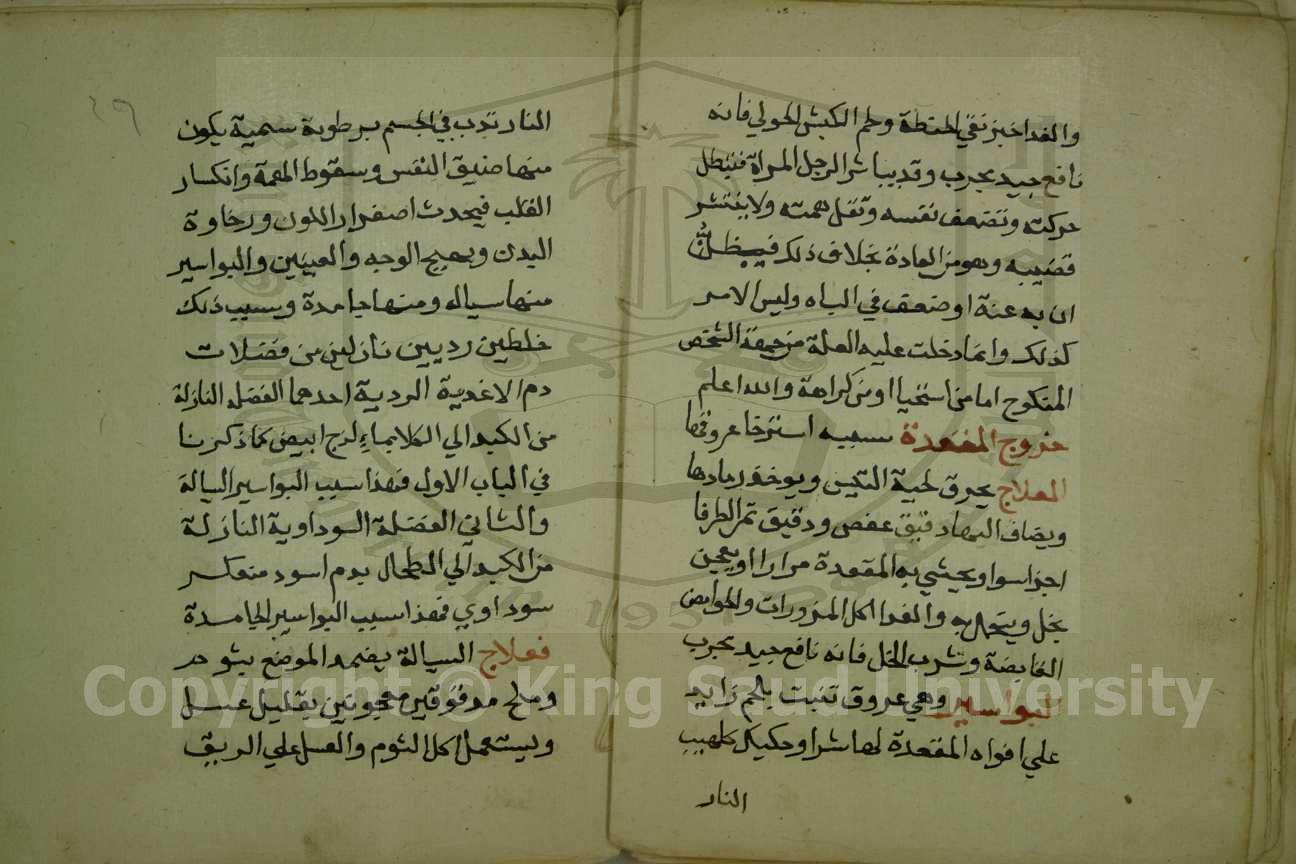 والغدا خبز نقي الحنطة ولحم الكبش الحولي فانه
نافع جيد مجرب وقد يباشر الرجل المراة فتبطل
حركته وتضعف نفسه وتقل همته ولا ينتشر
قضيبه وهو من العادة بخلاف ذلك فيظن
ان به عنة او ضعف في الباه وليس الامر
كذلك وانما دخلت عليه العلة من جهة الشخص
المنكوح اما من استحيا او من كراهة والله اعلم
خروج المقعدة سببه استرخا عروقها
العلاج يحرق لحية التيس ويوخذ رمادها
ويضاف اليها دقيق عفص ودقيق ثمر الطرفا
اجزا سوا ويحشي به المقعدة مرارا او يعجن
بخل ويتحمل به والغدا اكل المزورات والحوامض
القابضة وشرب الخل فانه نافع جيد مجرب
البواسير وهي عروق تنبت بلحم زايد
علي افواه المقعدة لها شرا وحكيك كلهيب
النار
٢٩
النار تدب في الجسم برطوبة سمية يكون
منها ضيق النفس وسقوط الهمة وانكسار
القلب فيحدث اصفرار اللون ورخاوة
البدن وبهيج الوجه والعينين والبواسير
منها سياله ومنها جامدة وسبب ذلك
خلطين رديين نازلين من فضلات
دم الاغدية الردية احدهما الفضله النازلة
من الكبد الي الكلا بماء لزج ابيض كما ذكرنا
في الباب الاول فهذا سبب البواسير السيالة
والثاني الفضلة السوداوية النازلة
من الكبد الي الطحال بدم اسود متعكر
سوداوي فهذا سبب البواسير الجامدة
فعلاج السيالة يضمد الموضع بثوم
وملح مدقوقين معجونين بقليل عسل
ويستعمل اكل الثوم والعسل علي الريق
Copyright © King Saud University
1957